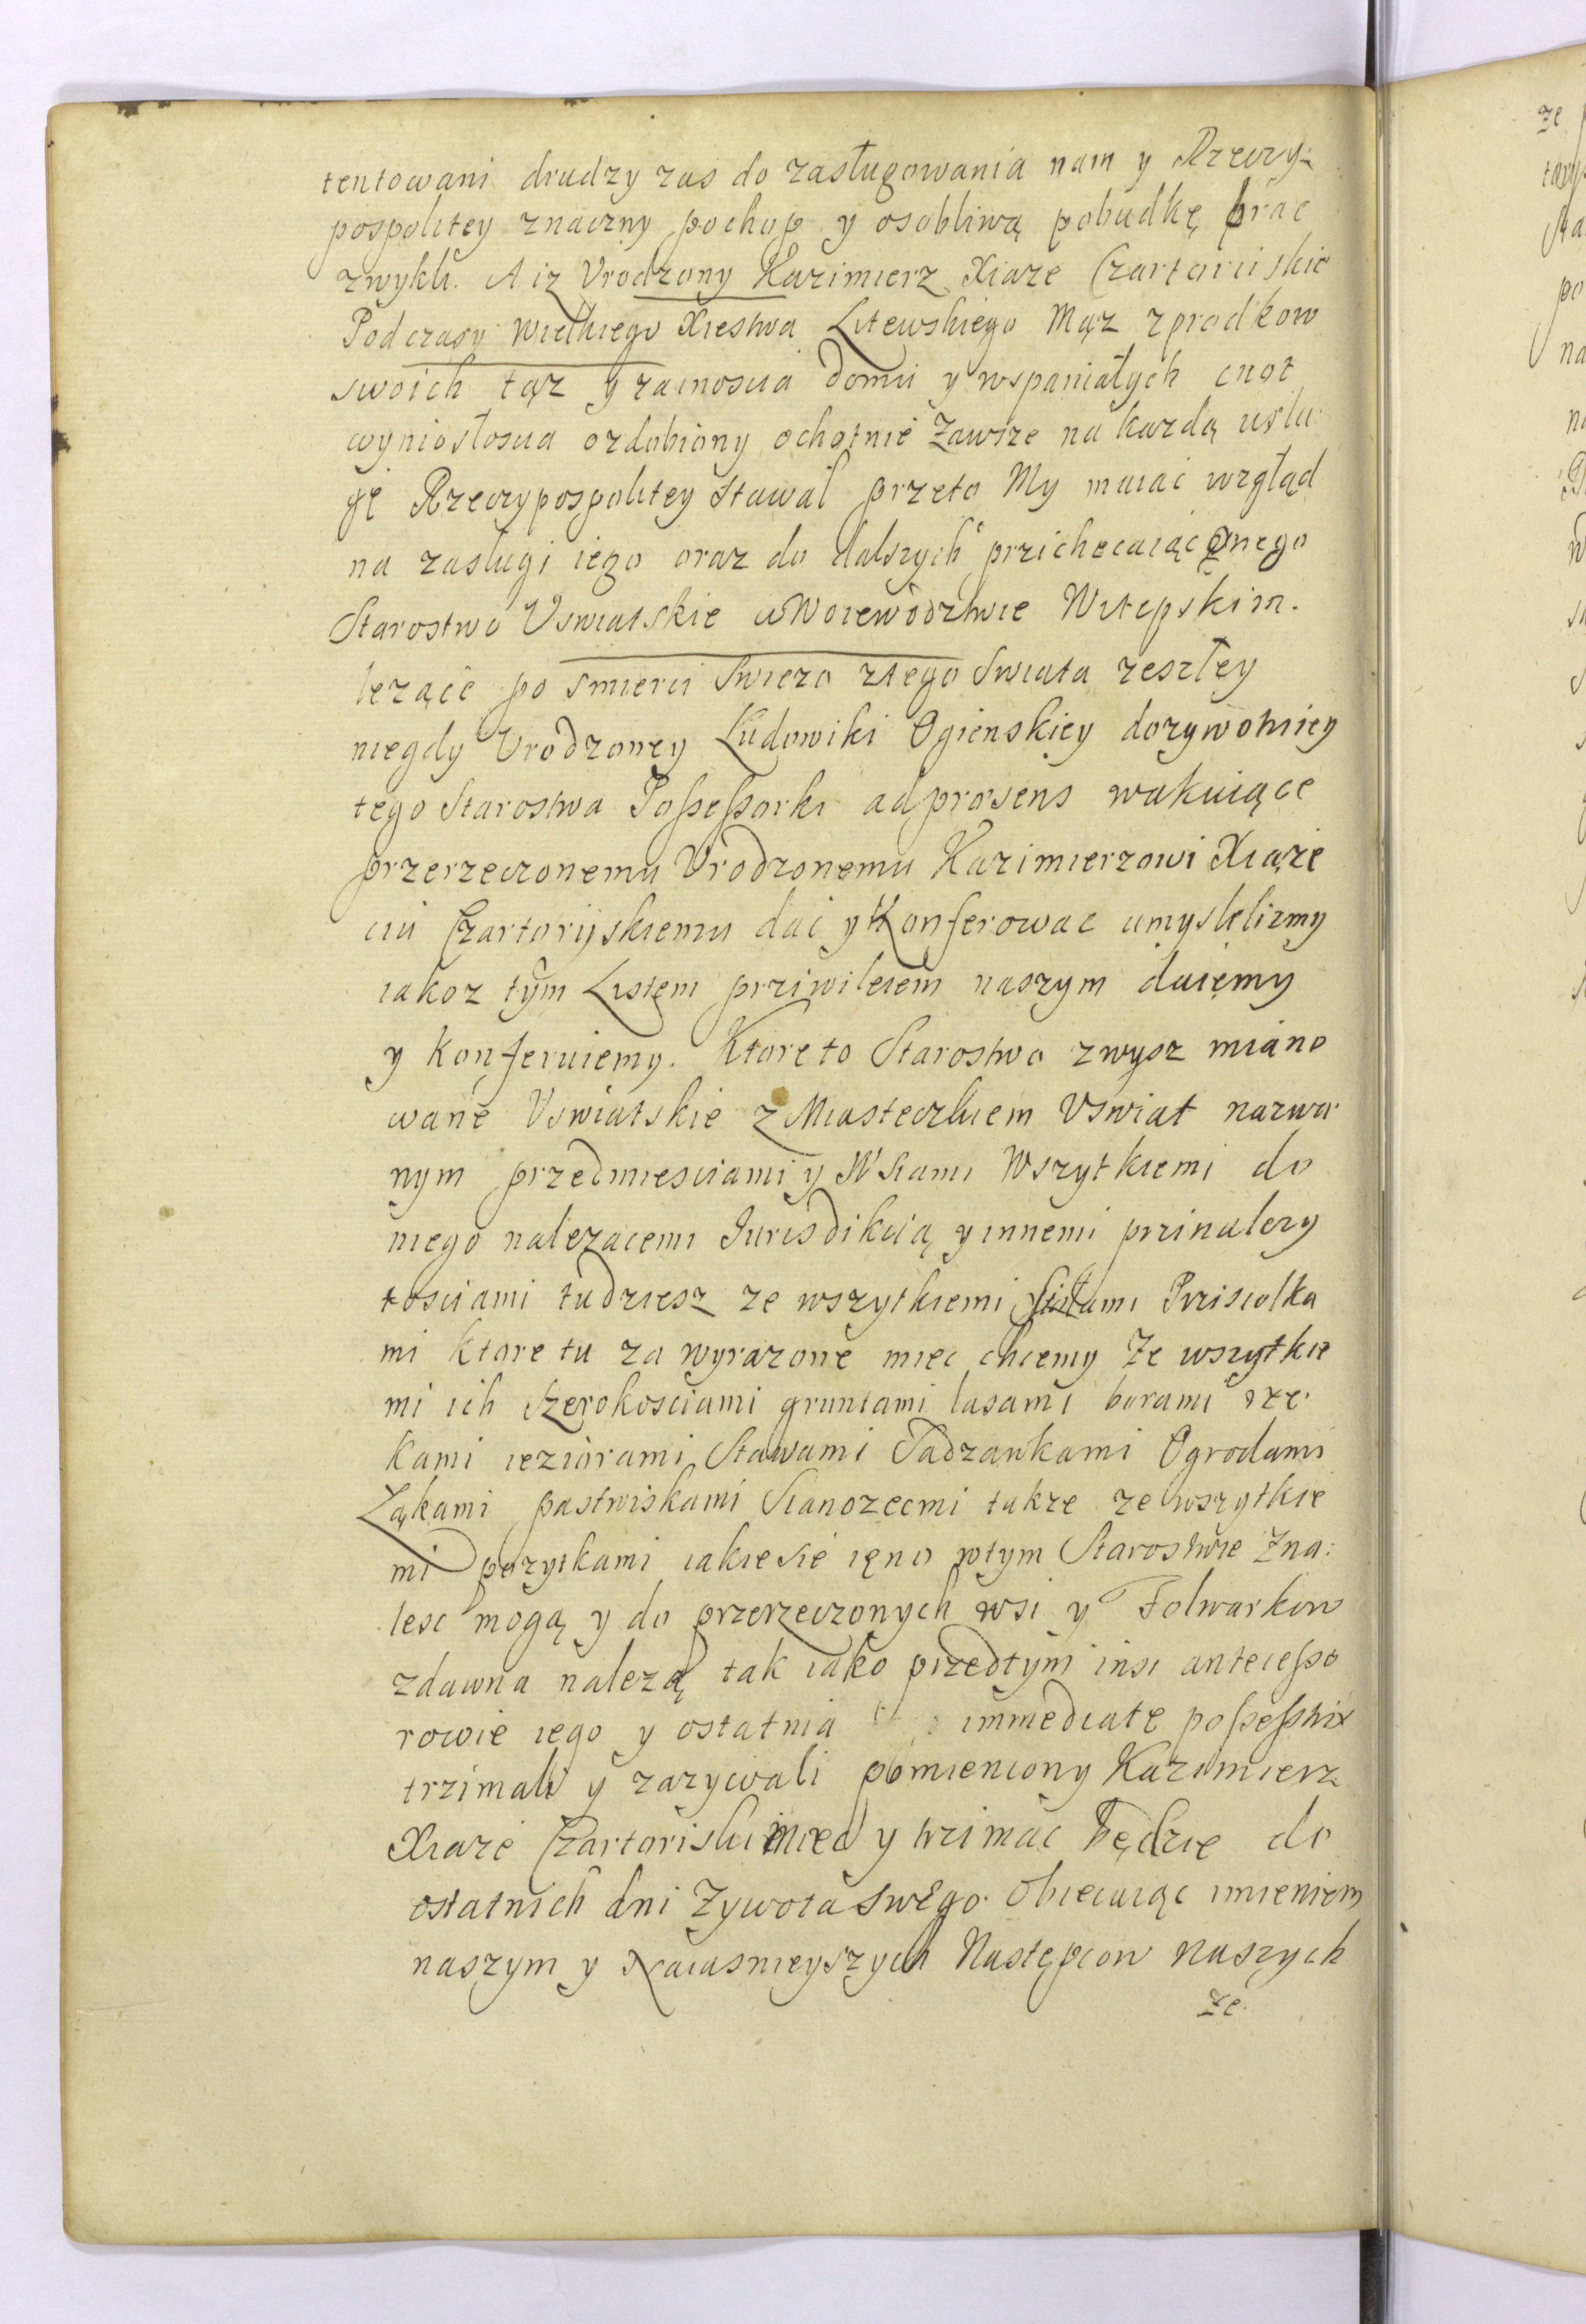 tentowani drudzy zas do zasługowania nam y Rzeczy-
pospolitey znaczny pochop y osobliwą pobudkę brac
zwykli. A iz Vrodzony Kazimierz Xiaze Czartoriiskie
Podczasy Wielkiego Xiestwa Litewskiego Mąz zprodkow
swoich tąz y zacnoscia domu y wspaniałych cnot
wyniosłoscia ozdobiony ochotnie Zawsze na kazdą usłu:
gę Rzeczypospolitey stawał przeto My maiąc wzgląd
na zasługi iego oraz do dalszych przichecaiąc onego
Starostwo Vswiatskie w Woiewodztwie Witepskim.
lezące po smierci swiezo ztego swiata zeszłey
niegdy Vrodzoney Ludowiki Ogienskiey dozywotniey
tego Starostwa Possessorki ad præsens wakuiące
przerzeczonemu Vrodzonemu Kazimierzowi Xiąże
ciu Czartoryskiemu dać y Konferowac umyslelizmy
iakoz tym Listem priwileiem naszym daięmy
y konferuiemy. Ktore to Starostwo zwysz miano
wane Vswiatskie z Miasteczkiem Vswiat nazwa
nym przedmiesciami y W Siami Wszytkiemi do
niego nalezacemi Jurisdikcią y innemi prinalezy
tosciami tudziesz ze wszytkiemi Siołami Prisiolka
mi ktore tu za wyrazone miec chcemy Ze wszytkie
mi ich szerokosciami gruntami lasami borami rze.
kami ieziorami Stawami Sadzawkami Ogrodami
Łąkami pastwiskami Sianozecmi takze ze wszytkie
mi pozytkami iakie sie ięno wtym Starostwie Zna:
lesc mogą y do przerzeczonych wsi y Folwarkow
zdawna nalezą tak iako przedtym insi antecesso
rowie iego y ostatnia immediate possestrix
trzimali y zazywali pomieniony Kazimierz
Xiaze Czartoriski miec y trzimac będzie do
ostatnich dni Zywota swego. Obiecuiąc imieniem
naszym y Naiasnieyszych Następcow naszych
ze